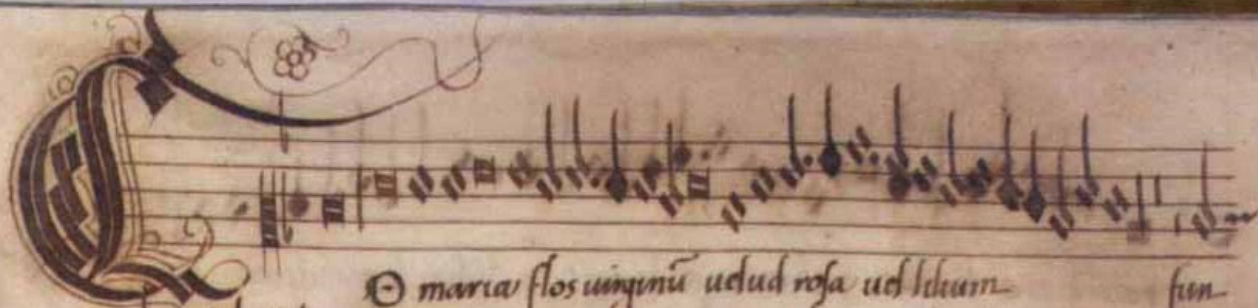 O maria flos uirginū uelud rosa uel lilium fun